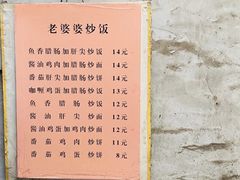 老婆婆炒饭
鱼香腊肠加肝尖炒饭 14元
酱油鸡肉加腊肠炒面 14元
番茄肝尖加腊肠炒饼 14元
咖喱鸡蛋加腊肠炒饭 13元
鱼香腊肠炒饭 12元
酱油肝尖炒面 12元
酱油鸡蛋加鸡肉炒面 12元
番茄鸡肉炒饼 11元
番茄鸡蛋炒饼 8元